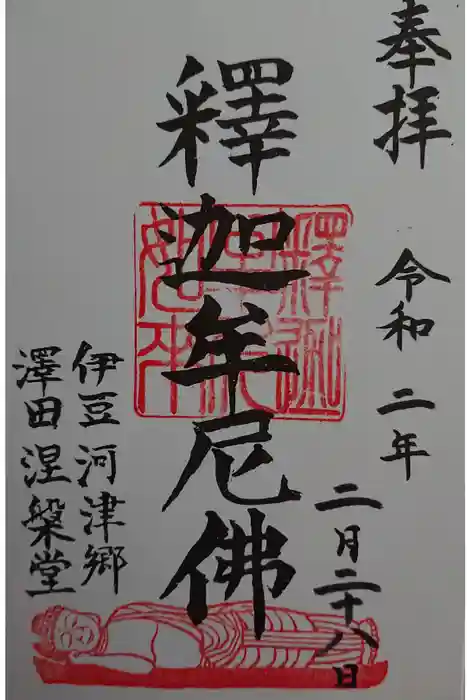 奉拝 令和二年
二月二十八日
釋迦牟尼佛
伊豆河津郷
澤田涅槃堂